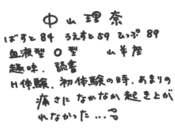 中山理奈
ばすと84 うえすと59 ひっぷ89
血液型O型 山羊座
趣味、読書
H体験、初体験の時、あまりの
痛さになかなか起き上が
れなかった…